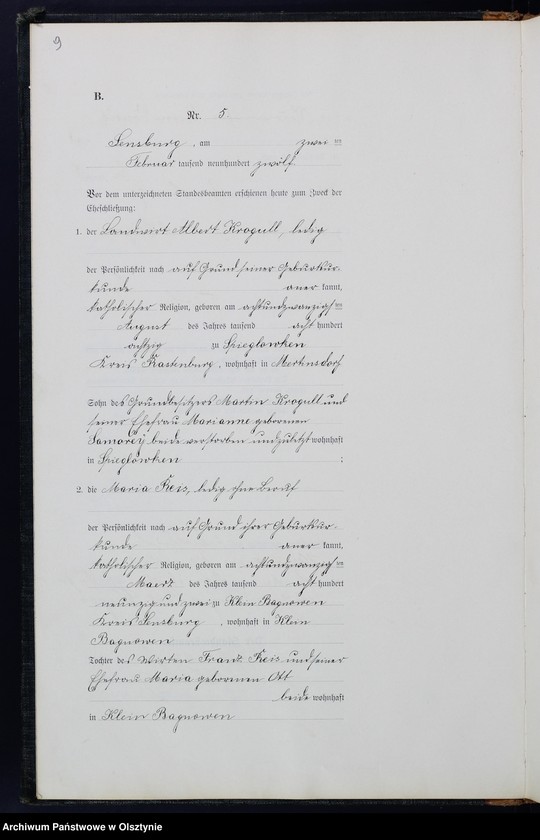 9
B.
Nr. 5.
Sensburg, am zwei ten
Februar tausend neunhundert zwölf.
Vor dem unterzeichneten Standesbeamten erschienen heute zum Zweck der
Eheschließung:
1. der Landwirt Albert Krogull, ledig
der Persönlichkeit nach auf Grund seiner Geburtsur-
kunde aner kannt,
katholischer Religion, geboren am achtundzwanzigsten
August des Jahres tausend acht hundert
achtzig zu Spieglowken
Kreis Rastenburg, wohnhaft in Mertinsdorf
Sohn des Grundbesitzers Martin Krogull und
seiner Ehefrau Marianne geborenen
beide verstorben und zuletzt wohnhaft
in Spieglowken ;
2. die Maria Reis, ledig ohne Beruf
der Persönlichkeit nach auf Grund ihrer Geburtsur-
kunde aner kannt,
katholischer Religion, geboren am achtundzwanzigsten
Maerz des Jahres tausend acht hundert
neunzig und zwei zu Klein Bagnowen
Kreis Sensburg, wohnhaft in Klein
Bagnowen
Tochter des Wirten Franz Reis und seiner
Ehefrau Maria geborenen Ott
beide wohnhaft
in Klein Bagnowen
Archiwum Państwowe w Olsztynie